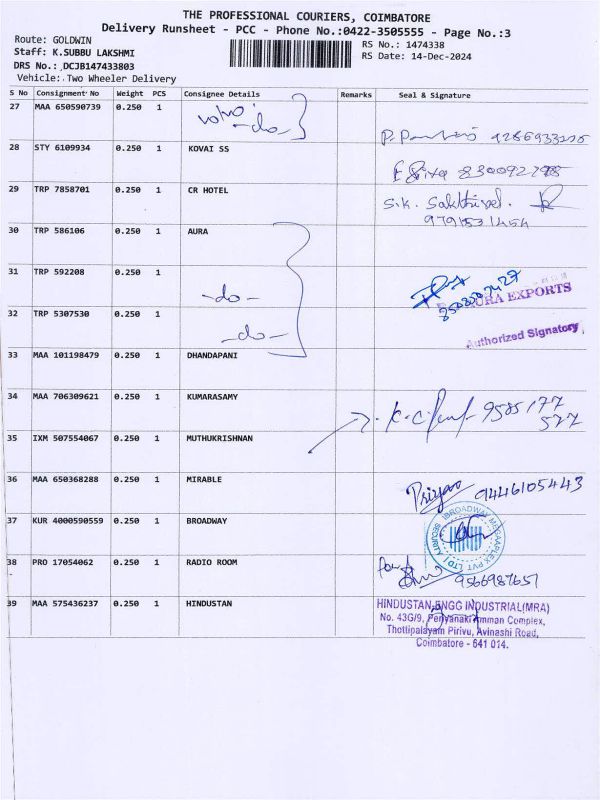 THE PROFESSIONAL COURIERS, COIMBATORE
Delivery Runsheet - PCC - Phone No.:0422-3505555 - Page No.:3
Route: GOLDWIN
RS No.: 1474338
Staff: K.SUBBU LAKSHMI
RS Date: 14-Dec-2024
DRS No.: DCJB147433803
Vehicle: Two Wheeler Delivery
S No Consignment No Weight PCS Consignee Details Remarks Seal & Signature
27 MAA 650590739 0.250 1 volvo
-do-
28 STY 6109934 0.250 1 KOVAI SS
29 TRP 7858701 0.250 1 CR HOTEL S.K. Sakthivel.
30 TRP 586106 0.250 1 AURA
31 TRP 592208 0.250 1
-do-
EXPORTS
32 TRP 5307530 0.250 1
-do-
Authorized Signatory
33 MAA 101198479 0.250 1 DHANDAPANI
34 MAA 706309621 0.250 1 KUMARASAMY 9585177
577
35 IXM 507554067 0.250 1 MUTHUKRISHNAN
36 MAA 650368288 0.250 1 MIRABLE Priya 9446105443
37 KUR 4000590559 0.250 1 BROADWAY
BROADWAY MEGAPLEX PVT LTD
SECURITY
38 PRO 17054062 0.250 1 RADIO ROOM
9566987657
39 MAA 575436237 0.250 1 HINDUSTAN
HINDUSTAN ENGG INDUSTRIAL(MRA)
No. 43G/9, Periyanaki Amman Complex,
Thottipalayam Pirivu, Avinashi Road,
Coimbatore - 641 014.